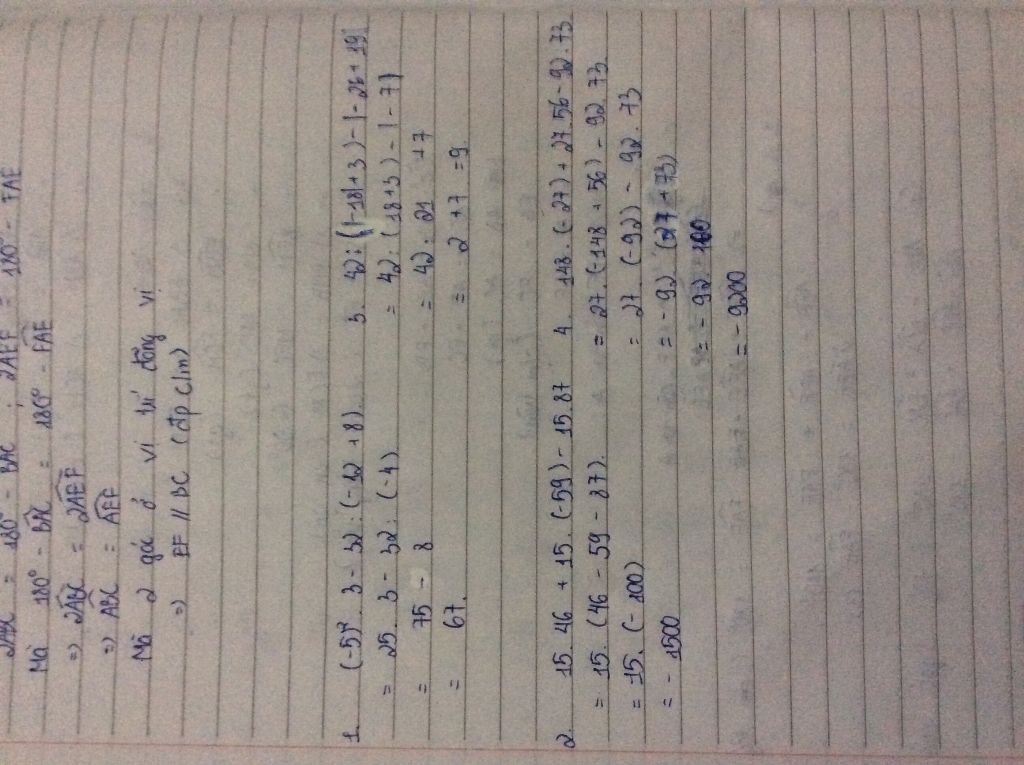 2ABC = 180° - BAC ; 2AEF = 180° - FAE
Mà 180° - BAC = 180° - FAE
=> 2ABC = 2AEF
=> ABC = AEF
Mà 2 góc ở vị trí đồng vị
=) EF // BC (đpc/m)
1. (-5)². 3 - 32 : (-12 + 8).
= 25. 3 - 32 : (-4)
= 75 - 8
= 67.
3. 42 : (|-18|+3) - |-26 + 19|
= 42 : (18+3) - |-7|
= 42 : 21 + 7
= 2 + 7 = 9.
2 15. 46 + 15. (-59) - 15 87
= 15. (46 - 59 - 87).
= 15. (-100)
= - 1500
4 148. (-27) + 27 56 - 92. 73
= 27. (-148 + 56) - 92 73
= 27. (-92) - 92. 73
= - 92 (27 + 73)
= - 92. 100
= - 9200